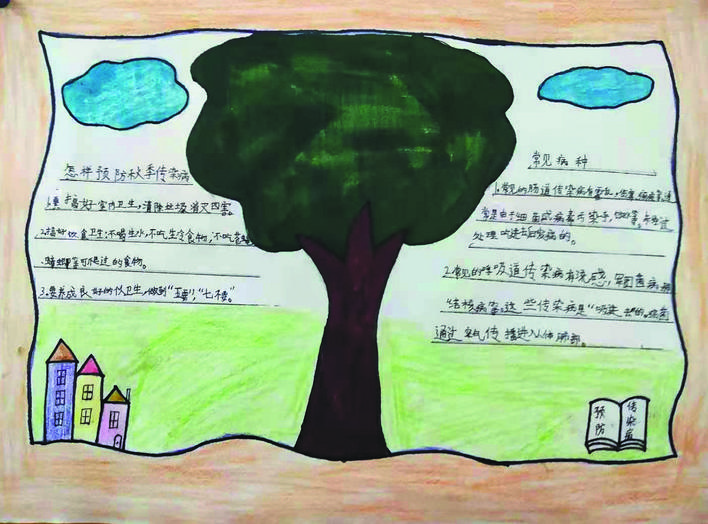 怎样预防秋季传染病
1.要搞好室内卫生,清除垃圾消灭四害。
2.搞好饮食卫生:不喝生水,不吃生冷食物,不吃苍蝇
蟑螂等可爬过的食物。
3.要养成良好的个人卫生,做到"五要","七不"。
常见病种
1.常见的肠道传染病有霍乱,伤寒,
常是由于细菌或病毒污染手,
处理吃进去后发病的。
2.常见的呼吸道传染病有流感,军团菌病,
结核病等,这些传染病是"吸进去"的。病菌
通过空气传播进入人体肺部。
预防
传染病